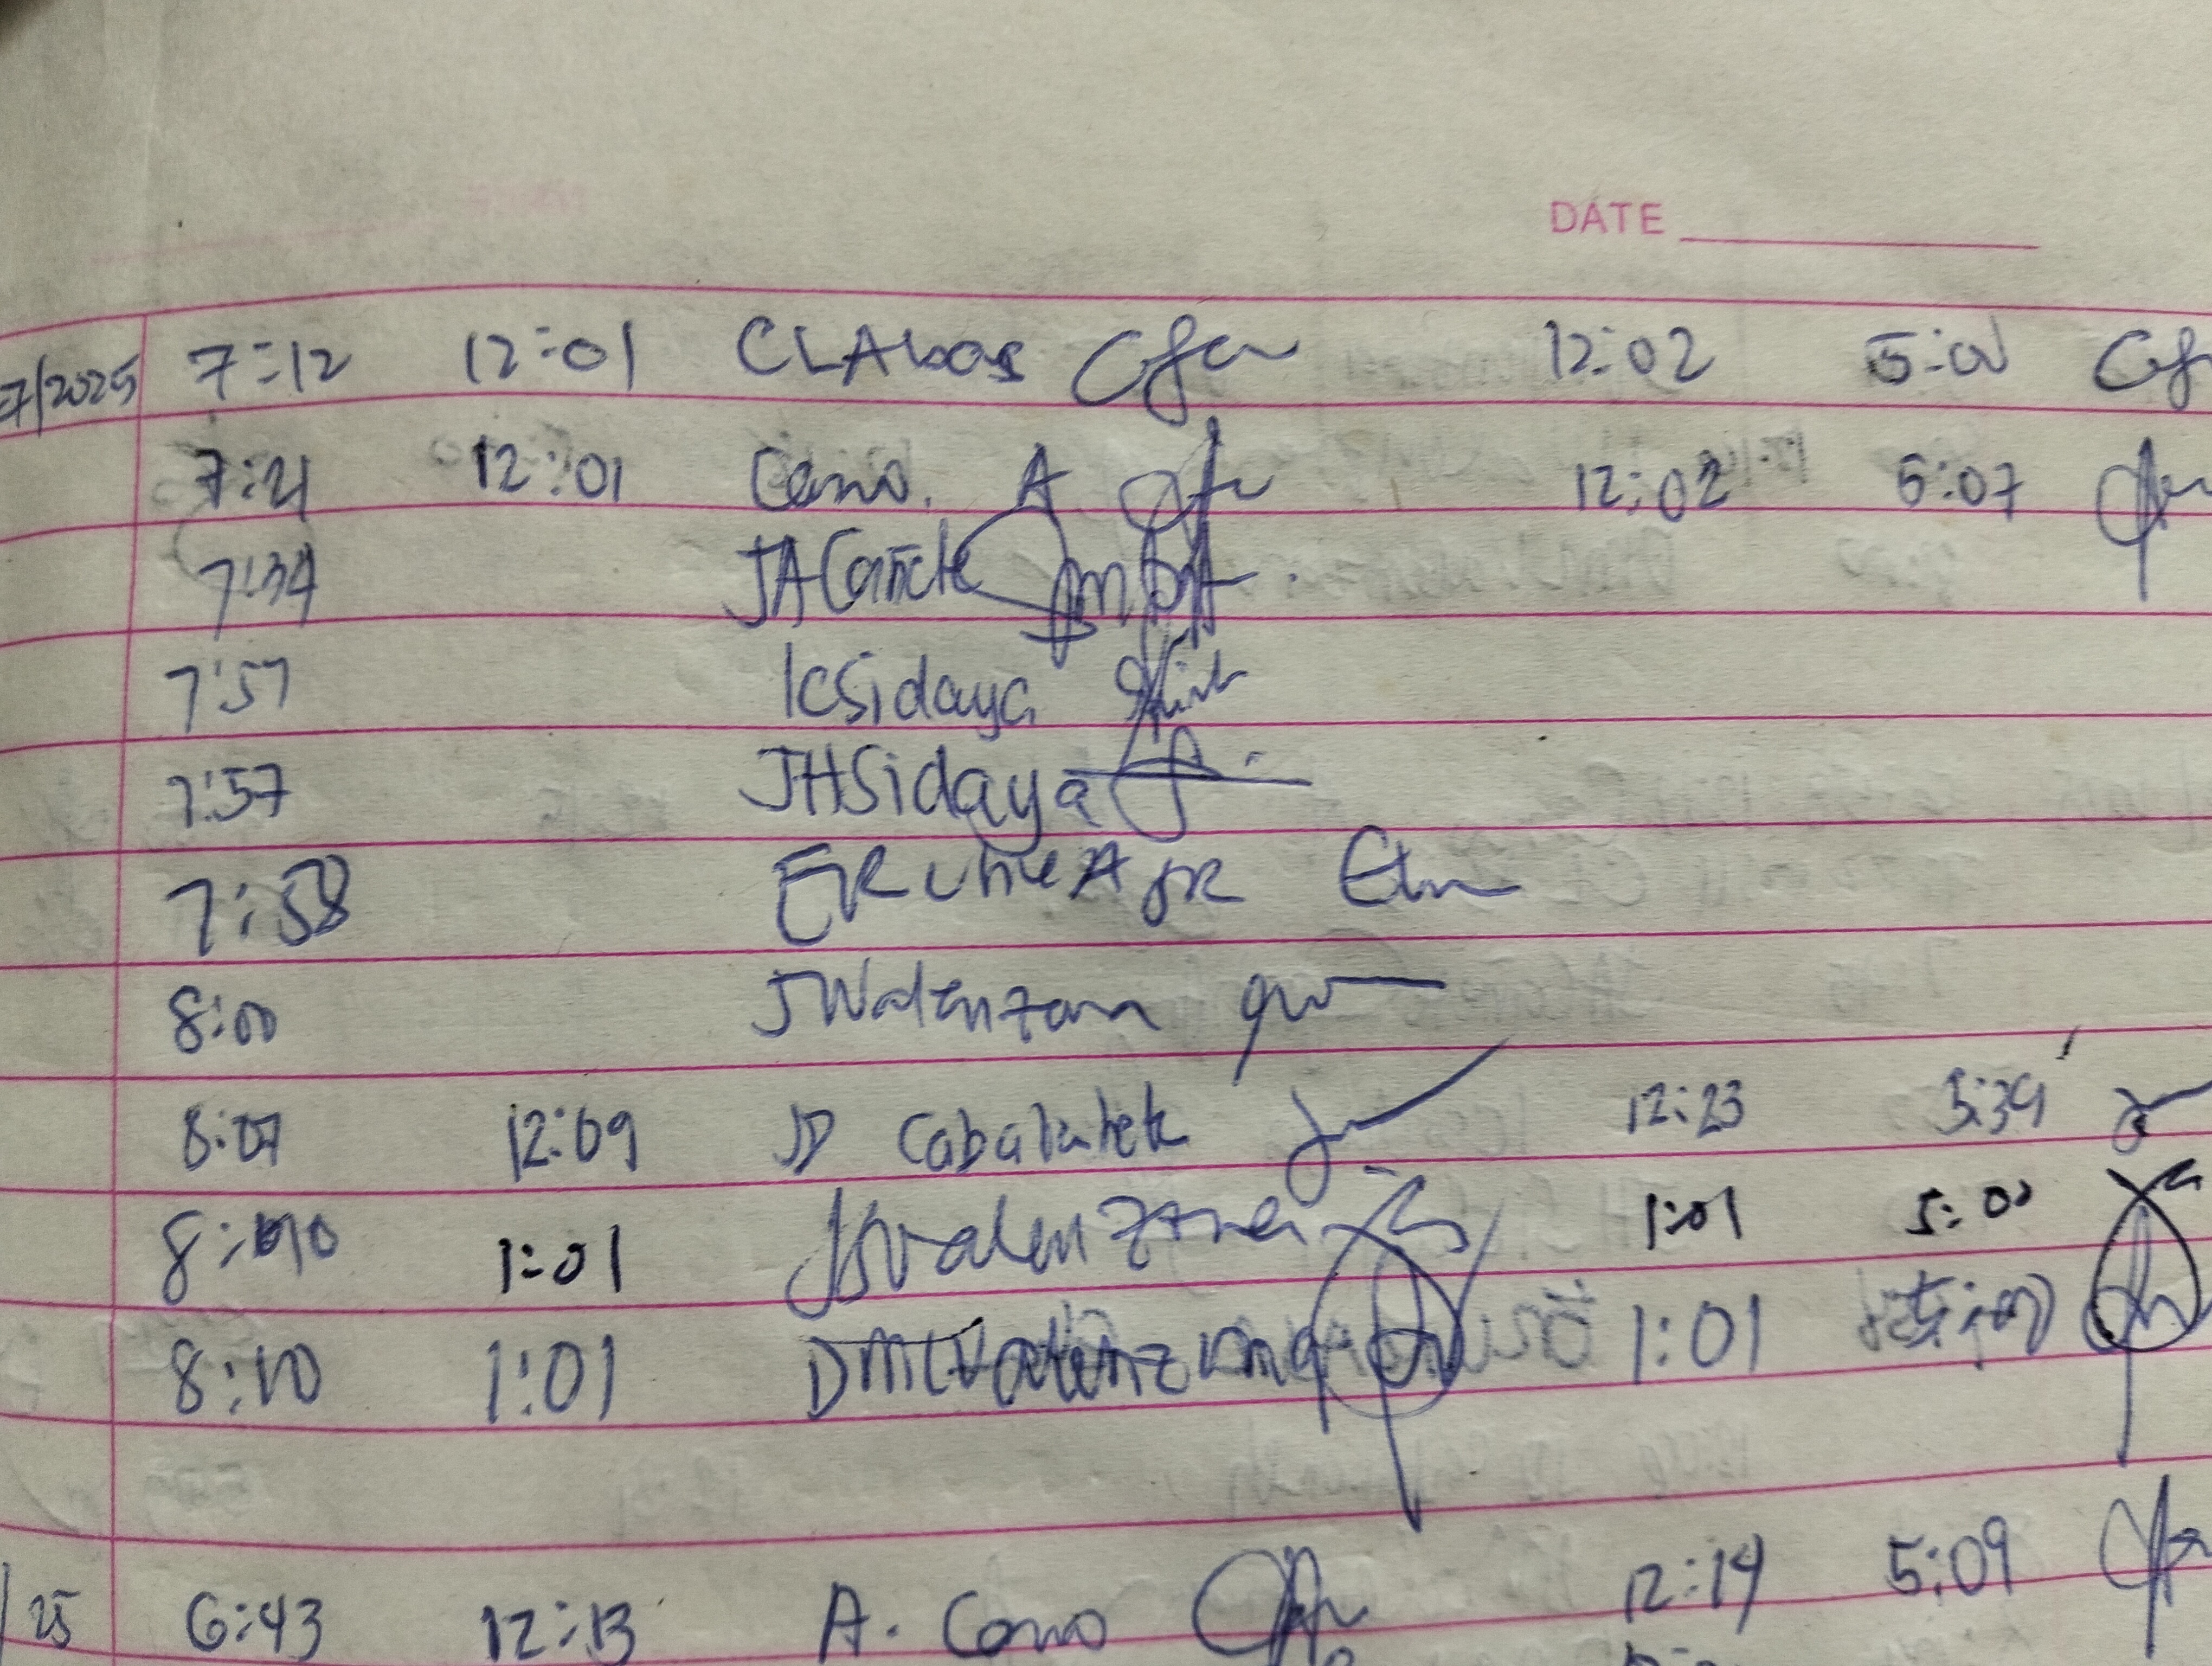 DATE
7/2025 7:12 12:01 CLAbas 12:02 5:00
7:21 12:01 Cano. A 12:02 5:07
7:34 JACañete
7:57 KSidaya
7:57 JHSidaya
7:58 ER JR
8:00 JValenzona
8:07 12:09 JD Cabalatek 12:23 5:39
8:10 1:01 JSValenzona 1:01 5:00
8:10 1:01 DMCValenzona 1:01 5:00
/25 6:43 12:13 A. Cano 12:14 5:09